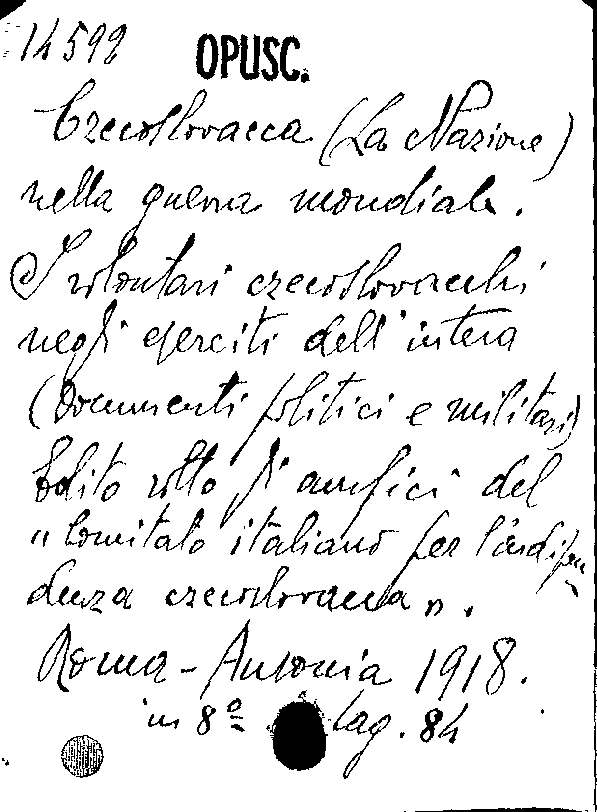 14592 OPUSC.
Czecoslovacca (La Nazione)
nella guerra mondiale.
I volontari czecoslovacchi
negli eserciti dell'intesa
(Documenti politici e militari)
Edito sotto gli auspici del
"Comitato italiano per l'indipen
denza czecoslovacca".
Roma - Ausonia 1918.
in 8º pag. 84